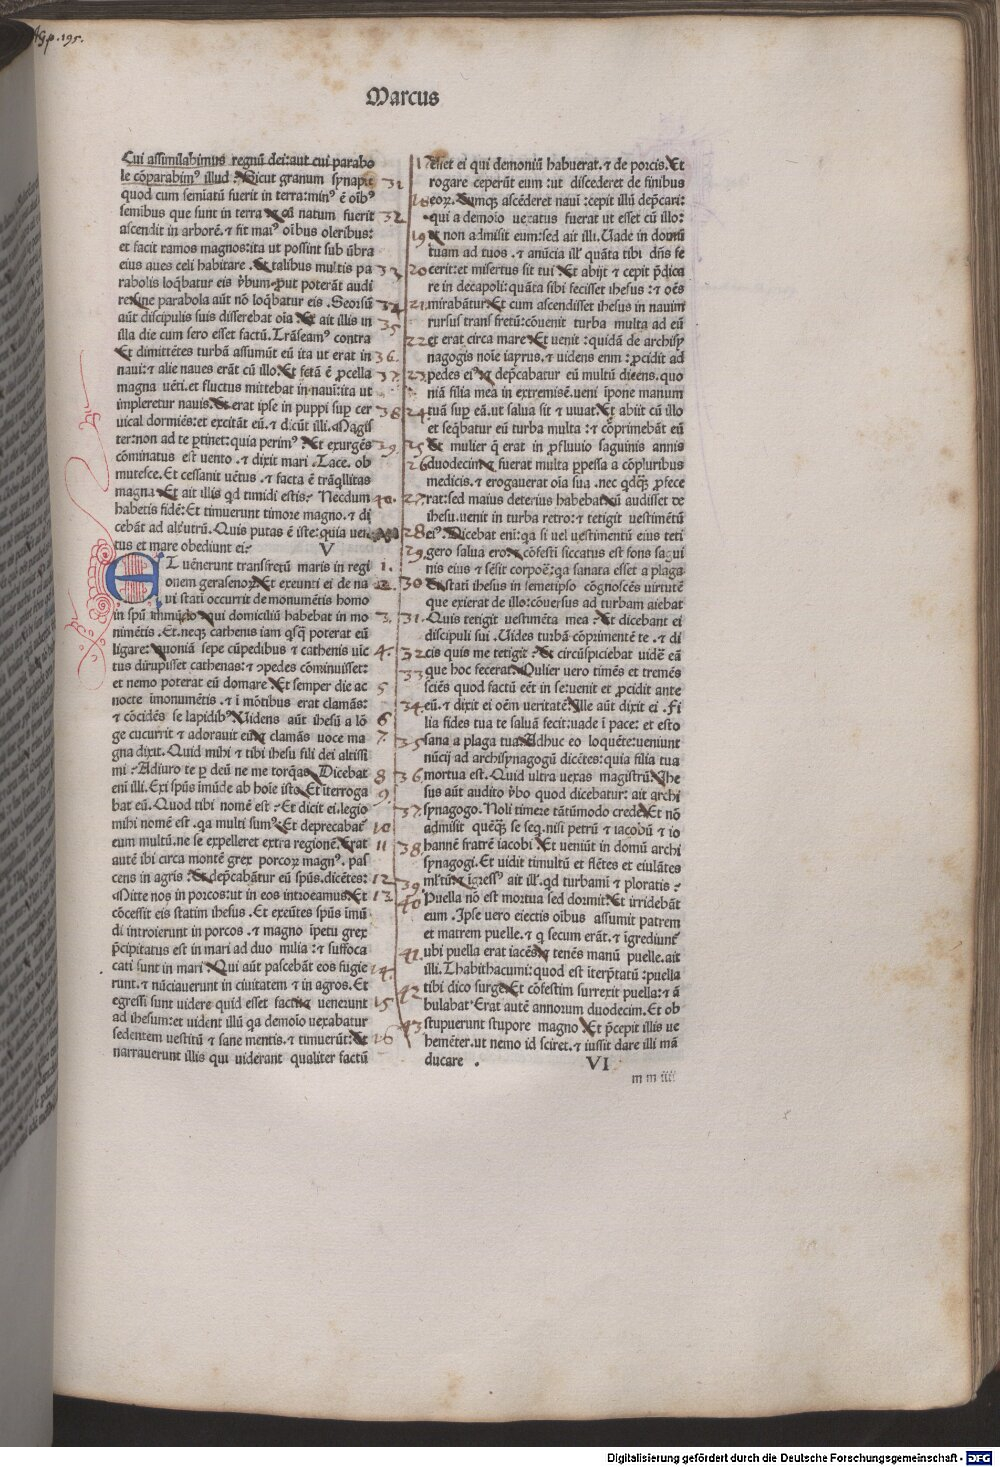 Agp. 195.
Marcus
Cui assimilabimus regnū dei: aut cui parabo
le cōparabimꝰ illud? Sicut granum synapis
quod cum semiatū fuerit in terra: minꝰ ē oībꝰ
semibus que sunt in terra & cū natum fuerit
ascendit in arborē. & fit maiꝰ oībus oleribus:
et facit ramos magnos: ita ut possint sub ūbra
eius aues celi habitare. Et talibus multis pa
rabolis loq̄batur eis v̄bum: ꝓut poterāt audi
re: sine parabola aūt nō loq̄batur eis. Seorsū
aūt discipulis suis disserebat oīa. Et ait illis in
illa die cum sero esset factū. Trāseamꝰ contra
Et dimittētes turbā assumūt eū ita ut erat in
naui: & alie naues erāt cū illo: Et fctā ē ꝓcella
magna uēti. et fluctus mittebat in nauī: ita ut
impleretur nauis. Et erat ipse in puppi sup̄ cer
uical dormiēs: et excitāt eū. & dicūt illi. Magis
ter: non ad te ꝑtinet: quia perimꝰ? Et exurgēs
cōminatus est uento. & dixit mari. Tace. ob
mutesce. Et cessauit uētus. & facta ē trāq̄llitas
magna. Et ait illis qd timidi estis? Necdum
habetis fidē: Et timuerunt timore magno. & di
cebāt ad altutrū. Quis putas ē iste: quia uen
tus et mare obediunt ei? V
ET uēnerunt transfretū maris in regi
onem gerasenoꝝ. Et exeunti ei de na
ui stati occurrit de monumētis homo
in spū immūdo qui domiciliū habebat in mo
nimētis. Et neqꝫ cathenis iam q̄sq̄ poterat eū
ligare: quoniā sepe cūpedibus & cathenis uīc
tus dirupisset cathenas: & ꝯpedes cōminuisset:
et nemo poterat eū domare. Et semper die ac
nocte īmonumētis. & ī mōtibus erat clamās:
& cōcidēs se lapidibꝰ. Videns aūt ihesū a lō
ge cucurrit & adorauit eū & clamās uoce ma
gna dixit. Quid mihi & tibi ihesu fili dei altissi
mi? Adiuro te ꝑ deū ne me torq̄as. Dicebat
eni illi. Exi spūs īmūde ab hoīe isto. Et īterroga
bat eū. Quod tibi nomē est? Et dicit ei. legio
mihi nomē est. qa multi sumꝰ: Et deprecabat̄
eum multū. ne se expelleret extra regionē. Erat
autē ibi circa montē grex porcoꝝ magnꝰ. pas
cens in agris: Et dep̄cabātur eū spūs. dicētes:
Mitte nos in porcos: ut in eos introeamus. Et
cōcessit eis statim ihesus. Et exeūtes spūs īmū
di introierunt in porcos. & magno īpetu grex
p̄cipitatus est in mari ad duo milia: & suffoca
cati sunt in mari. Qui aūt pascebāt eos fugie
runt. & nūciauerunt in ciuitatem & in agros. Et
egressi sunt uidere quid esset factū & uenerunt
ad ihesum: et uident illū qa demoīo uexabatur
sedentem uestitū & sane mentis. & timuerūt: Et
narrauerunt illis qui uiderant qualiter factū
31
32
33
34
35
36.
37
38
39
40.
41
1.
2.
3.
4.
5
6
7.
8
9.
10
11
12
13.
14.
15
16
esset ei qui demoniū habuerat. & de porcis. Et
rogare ceperūt eum: ut discederet de finibus
eoꝝ. Cumqꝫ ascēderet naui: cepit illū dep̄cari:
qui a demoīo uexatus fuerat ut esset cū illo:
et non admisit eum: sed ait illi. Uade in domū
tuam ad tuos. & anūcia ill' quāta tibi dn̄s fe
cerit: et misertus sit tui. Et abijt & cepit p̄dica
re in decapoli: quāta sibi fecisset ihesus: & oēs
mirabātur. Et cum ascendisset ihesus in nauim
rursus trans fretū: cōuenit turba multa ad eū
et erat circa mare. Et uenit: quidā de archisy
nagogis noīe iayrus. & uidens eum: ꝓcidit ad
pedes eiꝰ & dep̄cabatur eū multū dicens. quo
niā filia mea in extremis ē. ueni īpone manum
tuā sup̄ eā. ut salua sit & uiuat. Et abijt cū illo
et seq̄batur eū turba multa: & cōprimebāt eū
Et mulier q̄ erat in ꝓfluuio saguinis annis
duodecim & fuerat multa ꝑpessa a cōpluribus
medicis. & erogauerat oīa sua. nec qdq̄ ꝓfece
rat: sed maius deterius habebat. cū audisset de
ihesu. uenit in turba retro: & tetigit uestimētū
eiꝰ. Dicebat enī: qa si uel uestimentū eius teti
gero salua ero: & cōfesti siccatus est fons sagui
nis eius & sēsit corpoē: qa sanata esset a plaga
Et stati ihesus in semetipso cōgnoscēs uirtutē
que exierat de illo: cōuersus ad turbam aiebat
Quis tetigit uestimēta mea? Et dicebant ei
discipuli sui. Uides turbā cōprimentē te. & di
cis quis me tetigit? Et circūspiciebat uidē eā
que hoc fecerat. Mulier uero timēs et tremēs
sciēs quod factū eēt in se: uenit et ꝓcidit ante
eū. & dixit ei oēm veritatē. Ille aūt dixit ei. Fi
lia fides tua te saluā fecit: uade ī pace: et esto
sana a plaga tua. Adhuc eo loquēte: ueniunt
nūcij ad archisynagogū dicētes: quia filia tua
mortua est. Quid ultra uexas magistrū? Ihe
sus aūt audito v̄bo quod dicebatur: ait archi
synagogo. Noli timere tātūmodo crede. Et nō
admisit quēqꝫ se seq. nisi petrū & iacobū & io
hannē fratrē iacobi. Et ueniūt in domū archi
synagogi. Et uidit timultū et flētes et eiulātes
ml'tū: & īgressꝰ ait ill'. qd turbamī & ploratis?
Puella nō est mortua sed dormit: Et irridebāt
eum. Ipse uero eiectis oībus assumit patrem
et matrem puelle. & q secum erāt. & īgrediunt̄
ubi puella erat iacēs. & tenēs manū puelle. ait
illi. Thabithacumi: quod est iterp̄tatū: puella
tibi dico surge. Et cōfestim surrexit puella: & ā
bulabat. Erat autē annorum duodecim. Et ob
stupuerunt stupore magno. Et p̄cepit illis ue
hemēter. ut nemo id sciret. & iussit dare illi mā
ducare. VI
17
18
19
20
21.
22
23.
24.
25
26
27.
28
29.
30
31.
32
33
34.
35
36
37.
38.
39.
40
41.
42
43
m m iiii
Digitalisierung gefördert durch die Deutsche Forschungsgemeinschaft - DFG